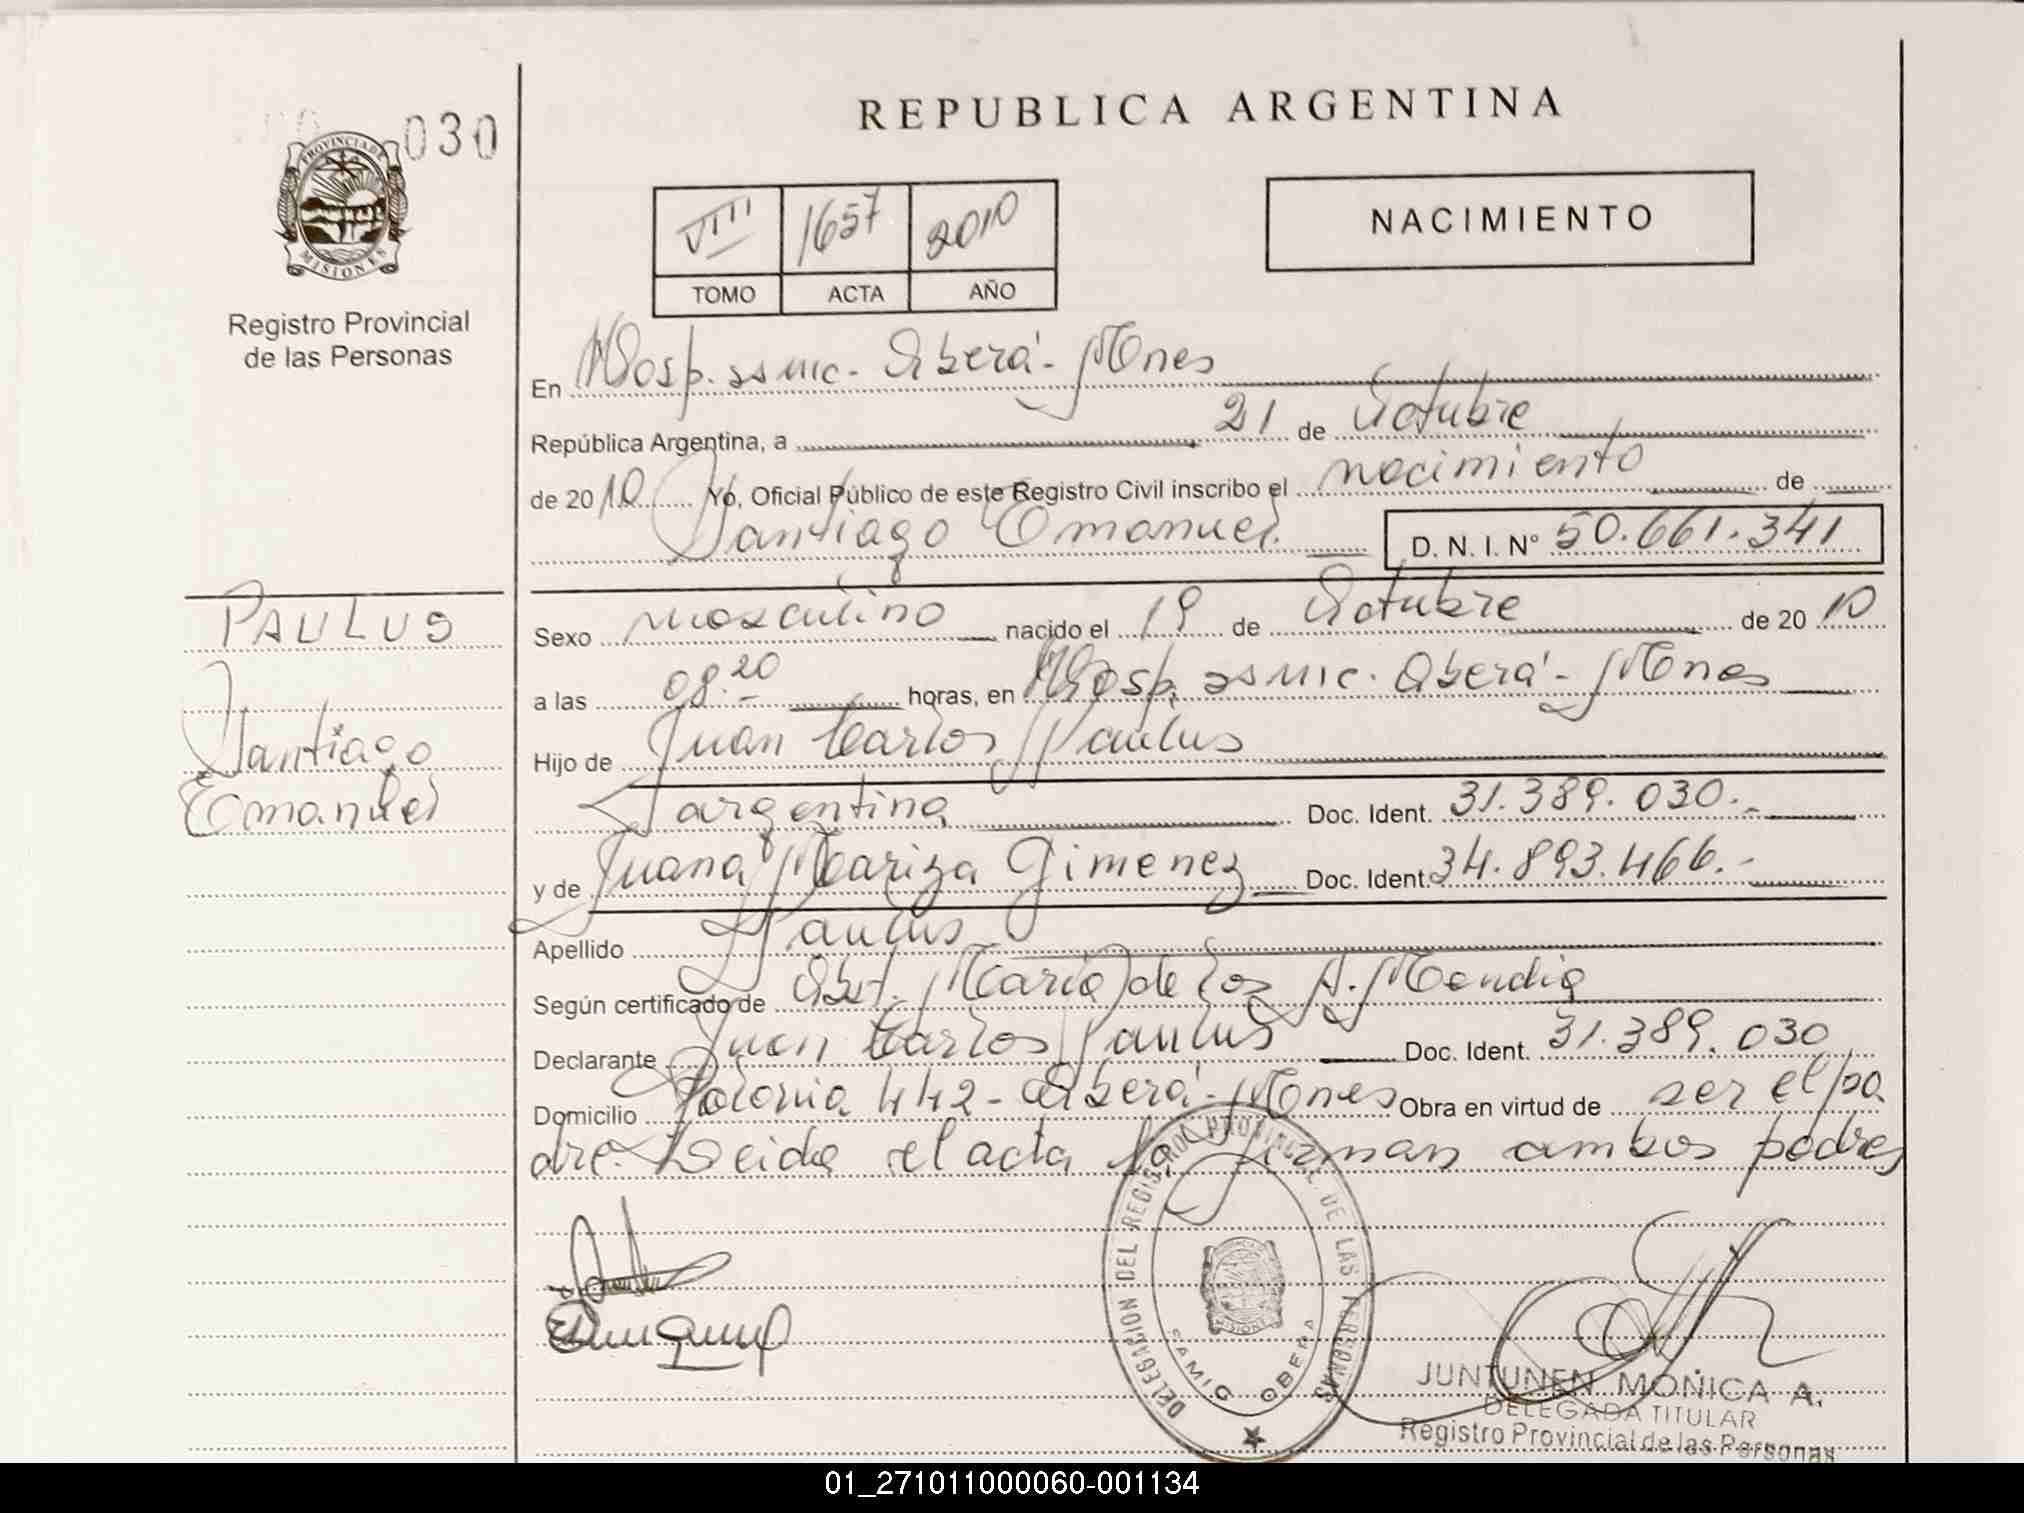 030
PROVINCIA DE
MISIONES
Registro Provincial
de las Personas
REPUBLICA ARGENTINA
VIII 1657 2010
TOMO ACTA AÑO
NACIMIENTO
En Hosp. ssmic. Oberá - Mnes
República Argentina, a 21 de Octubre
de 2010 Yo, Oficial Público de este Registro Civil inscribo el nacimiento de
Santiago Emanuel D. N. I. Nº 50.661.341
PAULUS
Santiago
Emanuel
Sexo masculino nacido el 19 de Octubre de 2010
a las 08.20 horas, en Hosp. ssmic. Oberá - Mnes
Hijo de Juan Carlos Paulus
argentina Doc. Ident. 31.389.030.-
y de Juana Mariza Gimenez Doc. Ident. 34.893.466.-
Apellido Paulus
Según certificado de Obst. María de los A. Mendia
Declarante Juan Carlos Paulus Doc. Ident. 31.389.030
Domicilio Polonia 442 - Oberá - Mnes Obra en virtud de ser el pa
dre. Leida el acta la firman ambos padres
DELEGACION DEL REGISTRO PROVINCIAL DE LAS PERSONAS
SAMIC OBERA
MISIONES
JUNTUNEN MONICA A.
DELEGADA TITULAR
Registro Provincial de las Personas
01_271011000060-001134